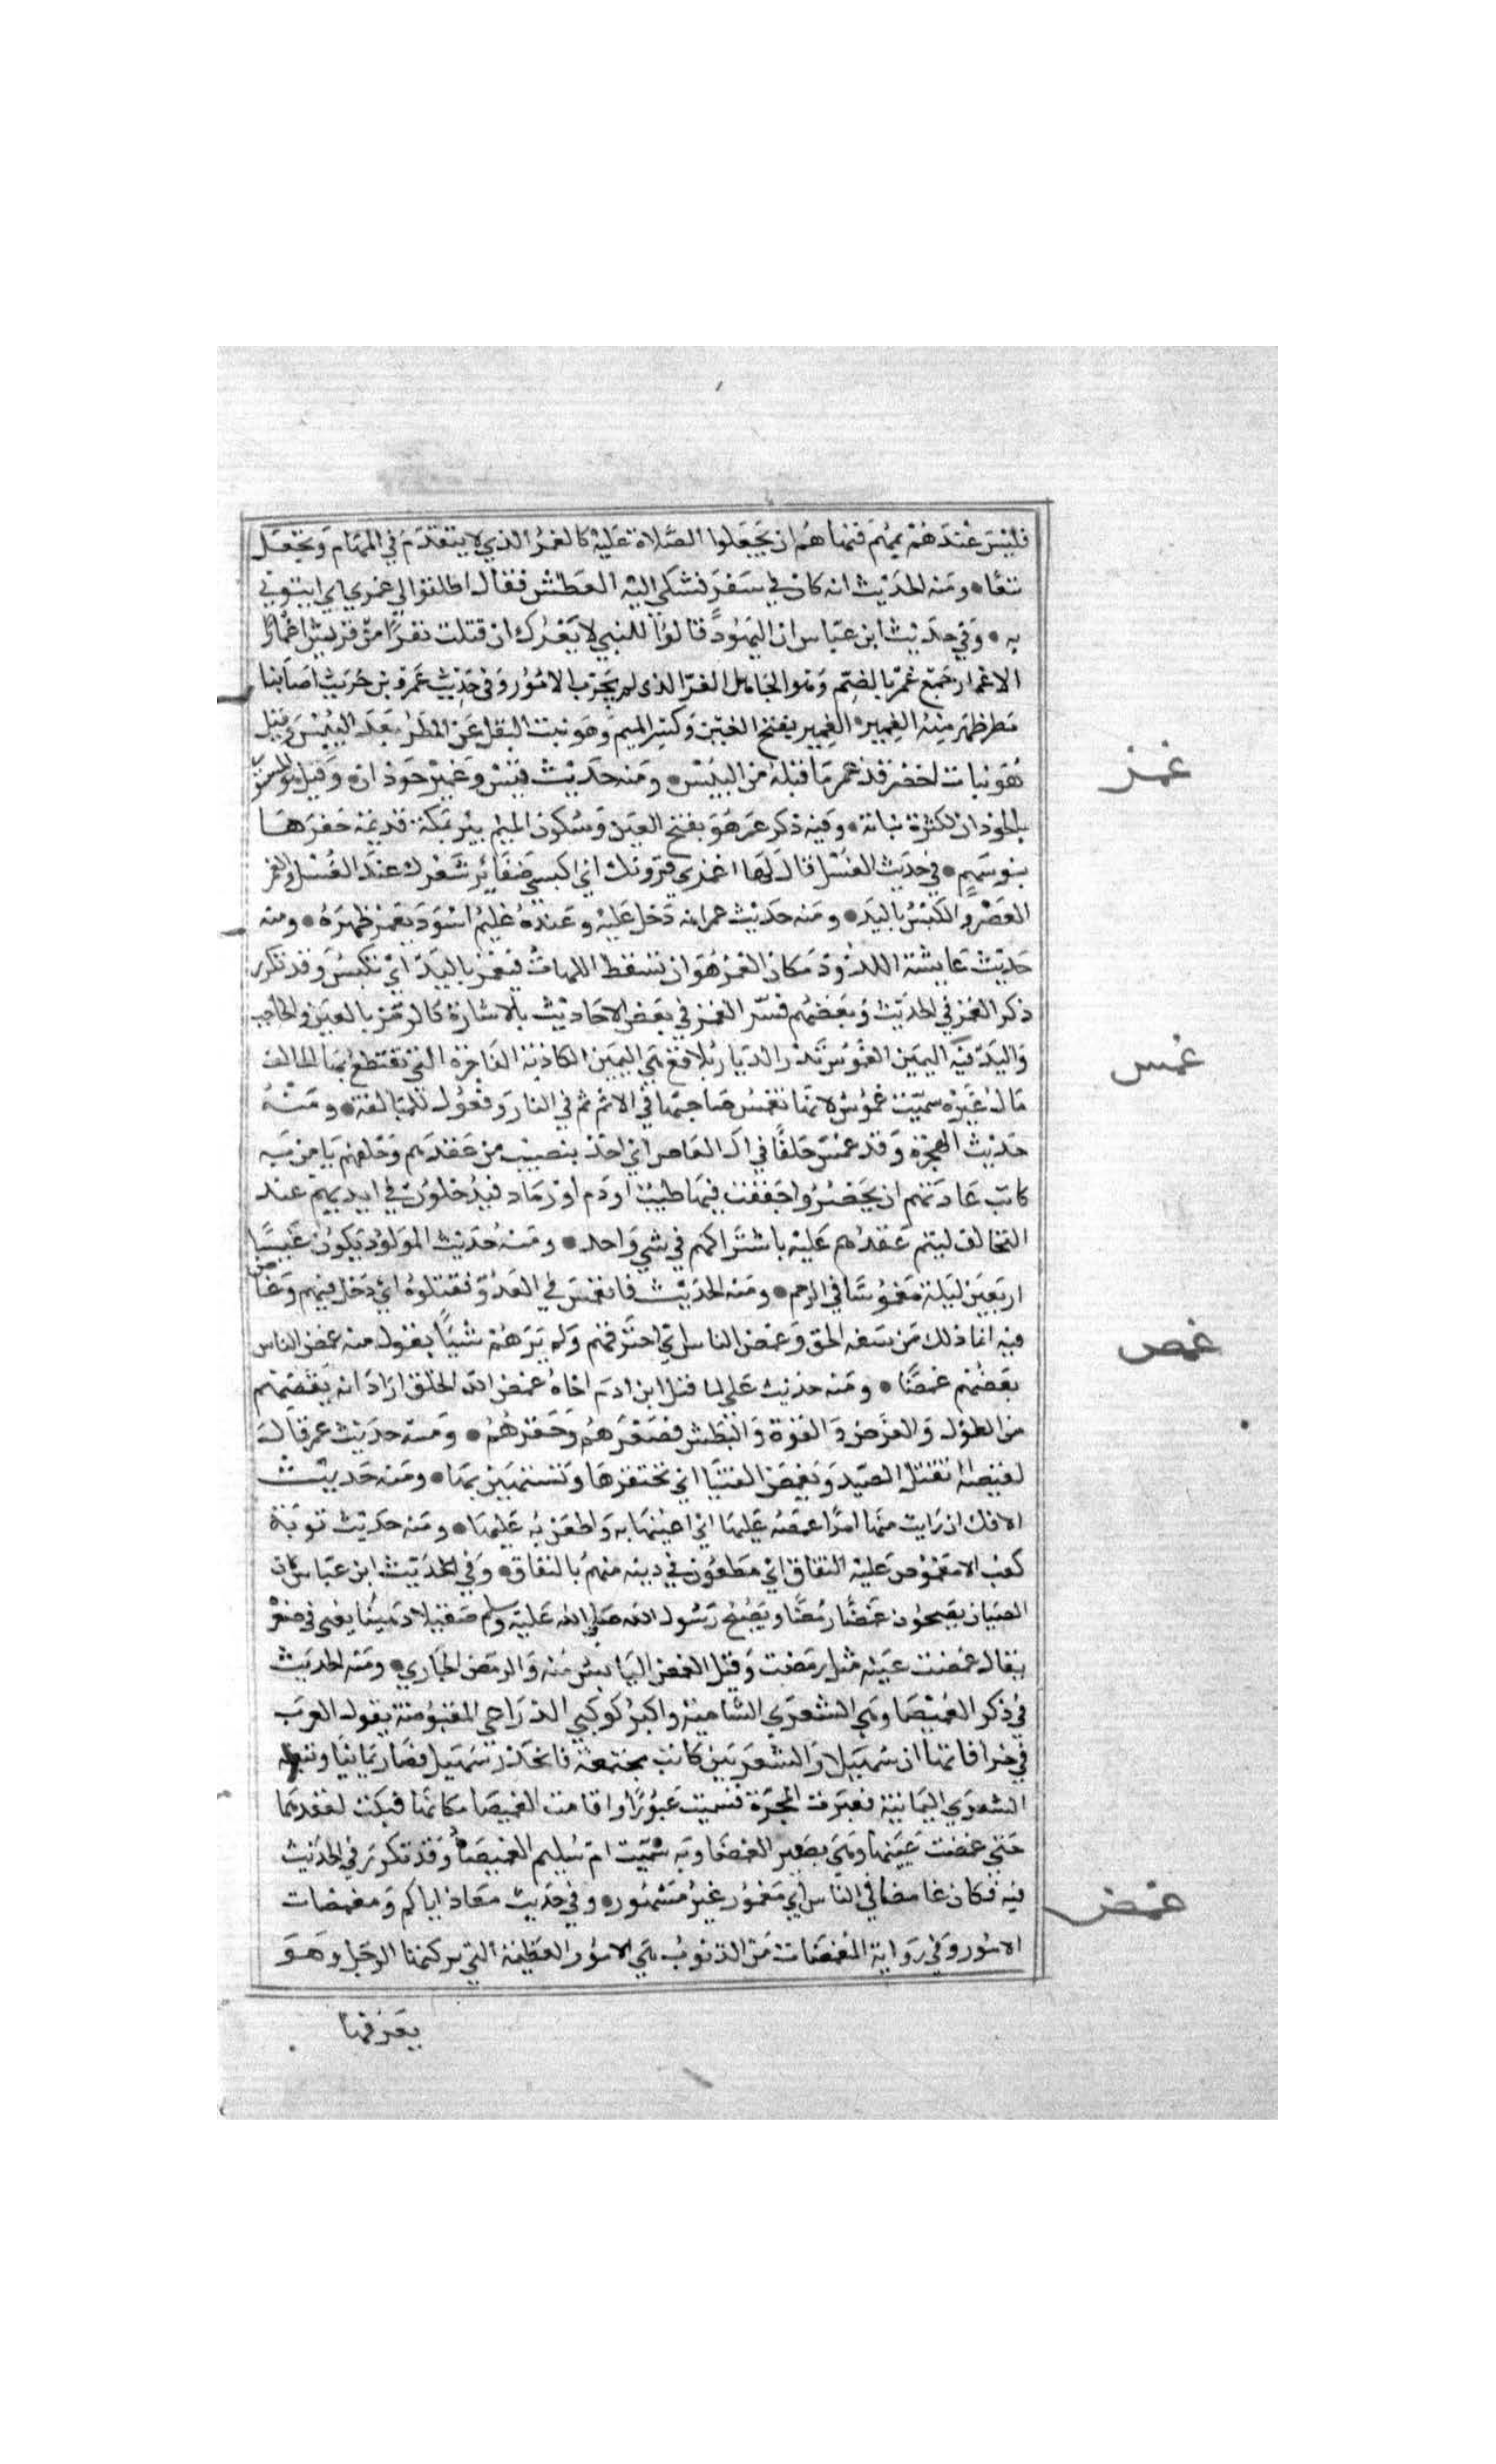 فليس عندهم بمهم فنهاهم ان يجعلوا الصلاة عليه كالغمر الذي لا يتقدم في المهام ويجعل
تبعا ومنه الحديث انه كان في سفر فشكى اليه العطش فقال اطلقوا لي غمري اي ايتوني
به وفي حديث ابن عباس ان اليهود قالوا للنبي لا يغرك ان قتلت نفرا من قريش اغمارا
الاغمار جمع غمر بالضم وهو الجاهل الغر الذي لم يجرب الامور وفي حديث عمرو بن حريث اصابنا
مطر ظهر منه الغمير الغمير بفتح الغين وكسر الميم وهو نبت البقل عن المطر بعد اليبس وقيل
هو نبات اخضر قد غمر ما قبله من اليبس ومنه حديث قيس وغمير حوذان وقيل هو المستور
بالحوذان لكثرة نباته وفيه ذكر غمر هو بفتح الغين وسكون الميم بير بمكة قديمة حفرها
بنو سهم في حديث الغسل قال لها اغمزي قرونك اي اكبسي ضفائر شعرك عند الغسل والغمز
العصر والكبس باليد ومنه حديث عمر انه دخل عليه وعنده غليم اسود يغمز ظهره ومنه
حديث عايشة اللدود مكان الغمز هو ان تسقط اللهات فيغمز باليد اي تكبس وقد تكرر
ذكر الغمز في الحديث وبعضهم فسر الغمز في بعض الاحاديث بالاشارة كالرمز بالعين والحاجب
واليد فيه اليمين الغموس تذر الديار بلاقع هي اليمين الكاذبة الفاجرة التي تقتطع بها الحالف
مال غيره سميت غموس لانها تغمس صاحبها في الاثم ثم في النار وفعول للمبالغة ومنه
حديث الهجرة وقد غمس حلفا في ال العاص اي اخذ بنصيب من عقدهم وحلفهم يامن به
كانت عادتهم ان يحضروا جفنة فيها طيب او دم او رماد فيدخلون في ايديهم عند
التحالف ليتم عقدهم عليه باشتراكهم في شي واحد ومنه حديث المولود يكون غميسا
اربعين ليلة مغموسا في الرحم ومنه الحديث فانغمس في العدو فقتلوه اي دخل فيهم وغاص
فيه انما ذلك من سفه الحق وغمص الناس اي احتقرهم ولم يرهم شيا يقول منه غمص الناس
بعضهم غمصا ومنه حديث علي لما قتل ابن ادم اخاه غمص الله الخلق اراد انه نقصهم
من الطول والعرض والقوة والبطش فصغرهم وحقرهم ومنه حديث عمر قال
لقبيصة اتقتل الصيد وتغمص الفتيا اي تحتقرها وتستهين بها ومنه حديث
الافك ان رايت منها امرا اغمصه عليها اي اعيبها به واطعن به عليها ومنه حديث توبة
كعب الا مغموص عليه النفاق اي مطعون في دينه متهم بالنفاق وفي الحديث ابن عباس كان
الصبيان يصبحون غمصا رمصا ويصبح رسول الله صلى الله عليه وسلم صقيلا دهينا يعني في صغره
يقال غمصت عينه مثل رمصت وقيل الغمص اليابس منه والرمص الجاري ومنه الحديث
في ذكر الغميصا وهي الشعرى الشامية واكبر كوكبي الذراع المقبوضة يقول العرب
في خرافاتها ان سهيلا والشعريين كانت مجتمعة فانحدر سهيل فصار يمانيا وتبعته
الشعرى اليمانية فعبرت المجرة فسميت عبورا واقامت الغميصا مكانها فبكت لفقدهما
حتى غمصت عينها وهي تصغير الغمصا وبه سميت ام سليم الغميصا وقد تكرر في الحديث
فيه فكان غامضا في الناس اي مغمور غير مشهور وفي حديث معاذ اياكم ومغمضات
الامور وفي رواية المغمضات من الذنوب هي الامور العظيمة التي يركبها الرجل وهو
يعرفها
غمز
غمس
غمص
غمض